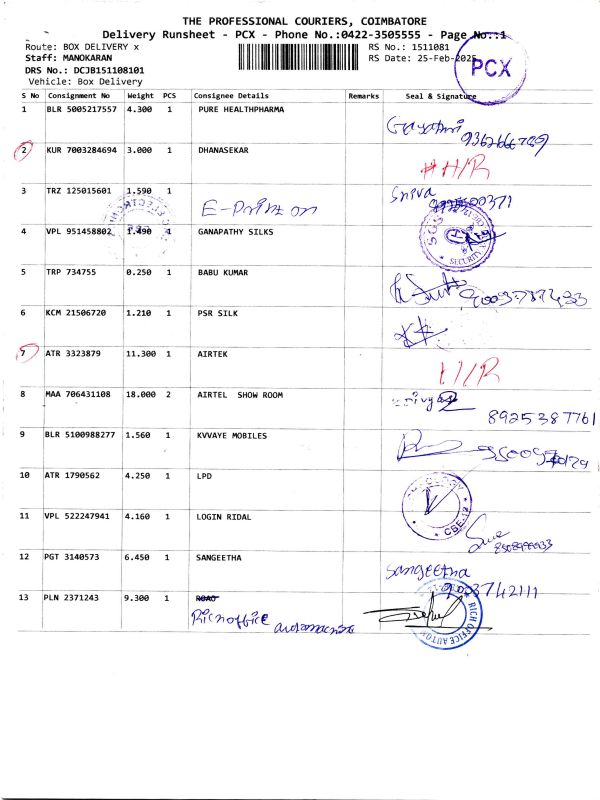 THE PROFESSIONAL COURIERS, COIMBATORE
Delivery Runsheet - PCX - Phone No.:0422-3505555 - Page No.:1
Route: BOX DELIVERY x
RS No.: 1511081
Staff: MANOKARAN
RS Date: 25-Feb-2025
PCX
DRS No.: DCJB151108101
Vehicle: Box Delivery
S No Consignment No Weight PCS Consignee Details Remarks Seal & Signature
1 BLR 5005217557 4.300 1 PURE HEALTHPHARMA
Gayathri
2 KUR 7003284694 3.000 1 DHANASEKAR
# H/R
3 TRZ 125015601 1.590 1
E-Print on
Sniva
4 VPL 951458802 1.490 1 GANAPATHY SILKS
SGS
SECURITY
5 TRP 734755 0.250 1 BABU KUMAR
6 KCM 21506720 1.210 1 PSR SILK
7 ATR 3323879 11.300 1 AIRTEK
H/R
8 MAA 706431108 18.000 2 AIRTEL SHOW ROOM
8925387761
9 BLR 5100988277 1.560 1 KVVAYE MOBILES
10 ATR 1790562 4.250 1 LPD
CBE-12
11 VPL 522247941 4.160 1 LOGIN RIDAL
12 PGT 3140573 6.450 1 SANGEETHA
Sangeetha
9003742111
13 PLN 2371243 9.300 1 ROAO
Richoffice
RICH OFFICE AUTOM